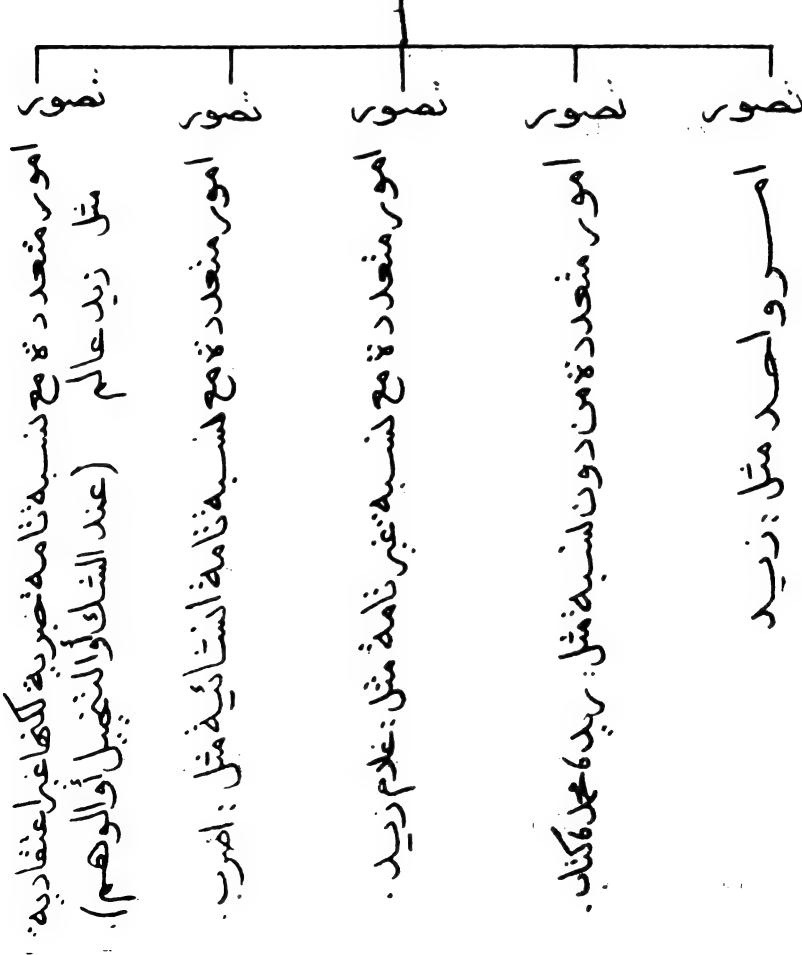 تصور
امر واحد مثل : زيد
تصور
امور متعددة من دون نسبة مثل : زيد، محمد، كتاب.
تصور
امور متعددة مع نسبة غير تامة مثل : غلام زيد.
تصور
امور متعددة مع نسبة تامة انشائية مثل : اضرب.
تصور
امور متعددة مع نسبة تامة خبرية لكنها غير اعتقادية.
مثل زيد عالم (عند الشك أو التخييل أو الوهم).